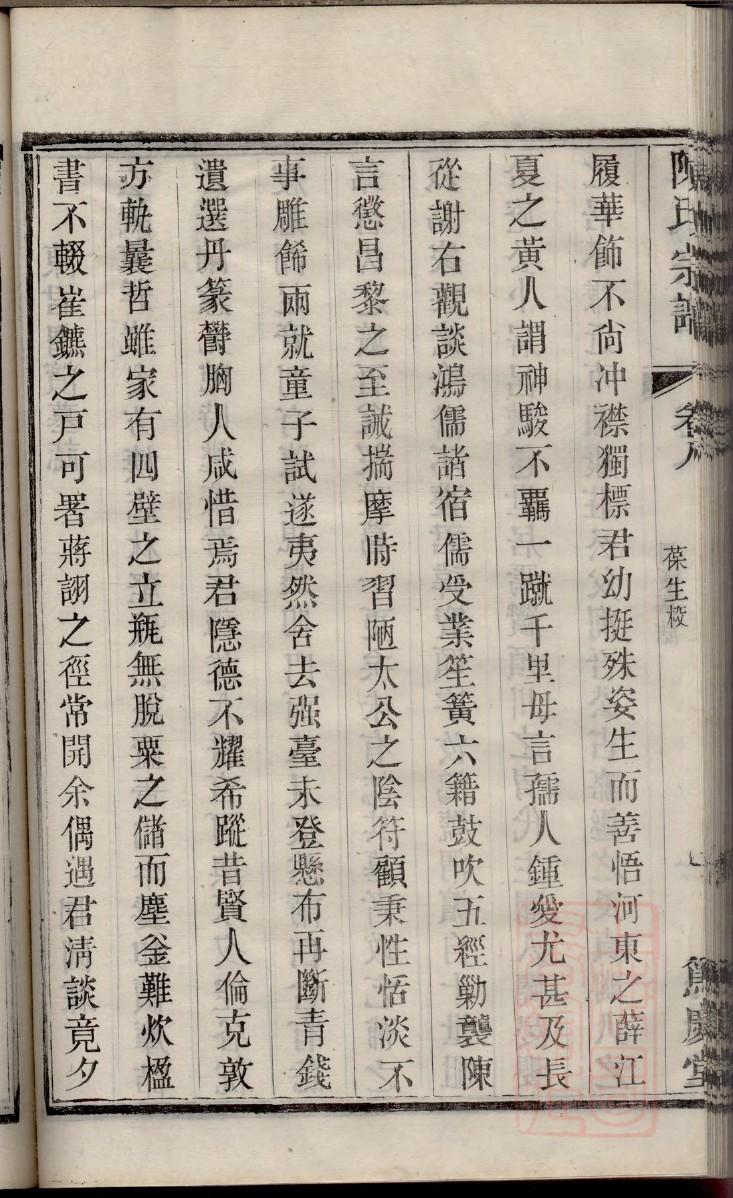 陳氏宗譜
卷八
葆生校
篤慶堂
履華飾不尙冲襟獨標君幼挺殊姿生而善悟河東之薛江
夏之黃人謂神駿不羈一蹴千里母言孺人鍾愛尤甚及長
從謝右觀談鴻儒諸宿儒受業笙簧六籍鼓吹五經勦襲陳
言懲昌黎之至誡揣摩時習陋太公之陰符顧秉性恬淡不
事雕餙兩就童子試遂夷然舍去强臺未登懸布再斷青錢
遺選丹篆欝胸人咸惜焉君隱德不耀希蹤昔賢人倫克敦
方軌曩哲雖家有四壁之立瓶無脫粟之儲而塵釜難炊楹
書不輟崔鑣之戸可署蔣詡之徑常開余偶遇君淸談竟夕